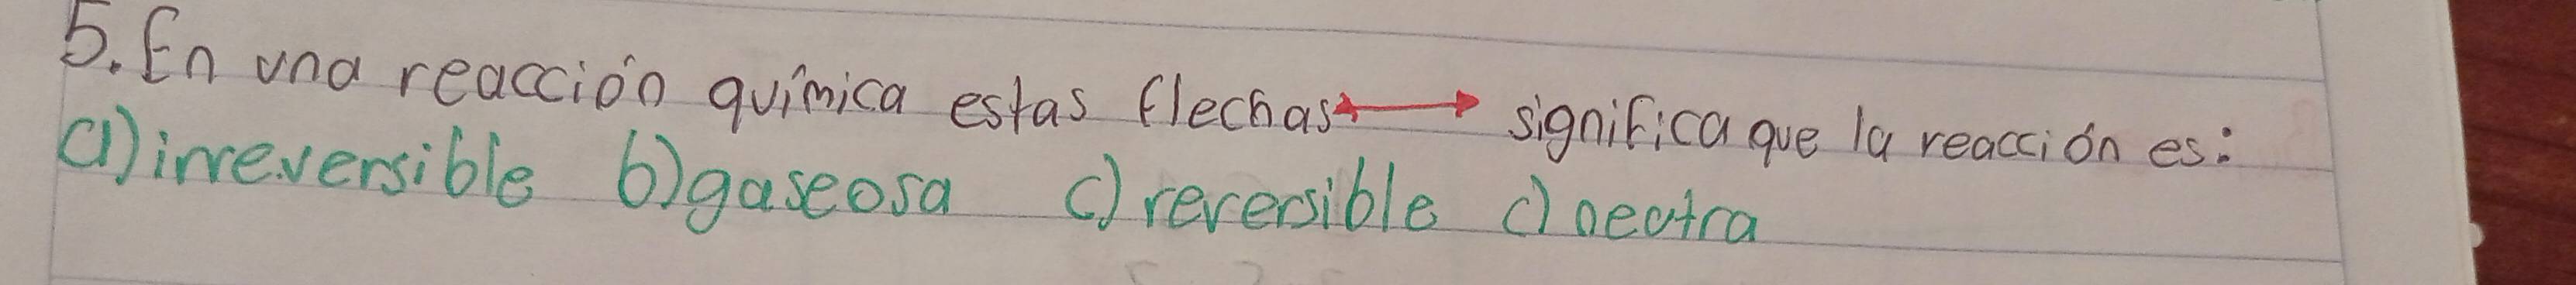 5. En una reacción química estas flechas ↔ significa que la reacción es:
a) irreversible b) gaseosa c) reversible d) neutra